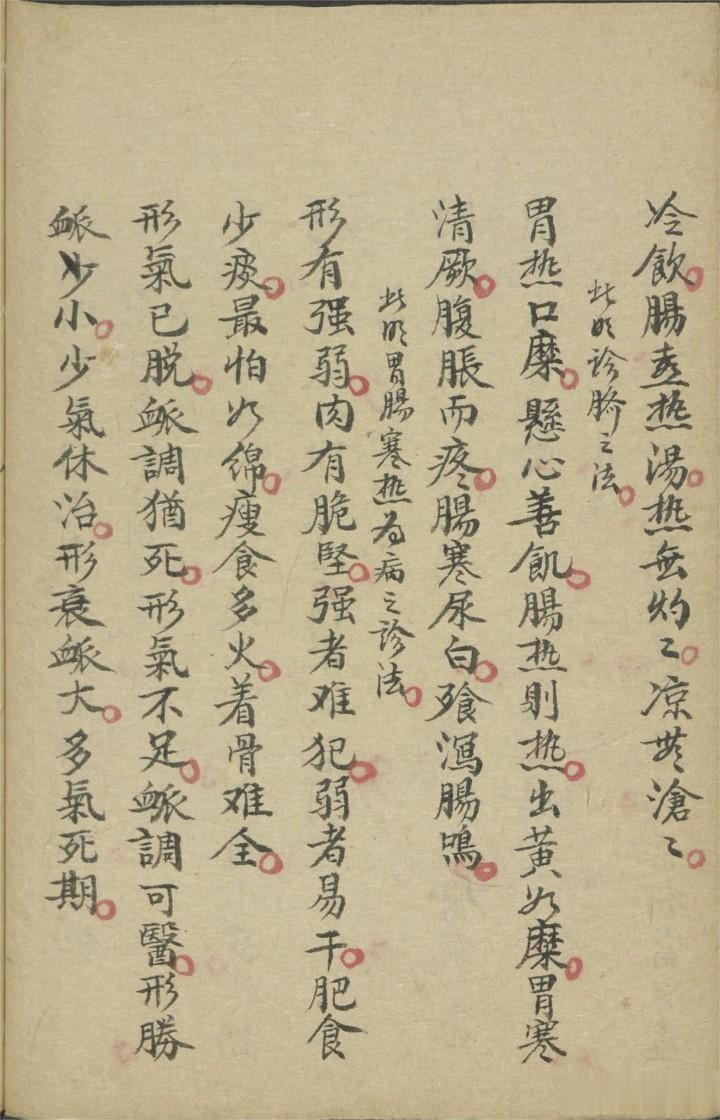 冷飲。腸喜热湯。热無灼々。凉無滄々。
此明診臍之法。
胃热口糜。懸心善飢。腸热則热。出黃如糜。胃寒
清厥。腹脹而疼。腸寒尿白。飱瀉腸鳴。
此明胃腸寒热为病之診法。
形有强弱。肉有脆堅。强者难犯。弱者易干。肥食
少痰。最怕如綿。瘦食多火。着骨难全。
形氣已脱。䘑調猶死。形氣不足。䘑調可醫。形勝
䘑少小。少氣休治。形衰䘑大。多氣死期。